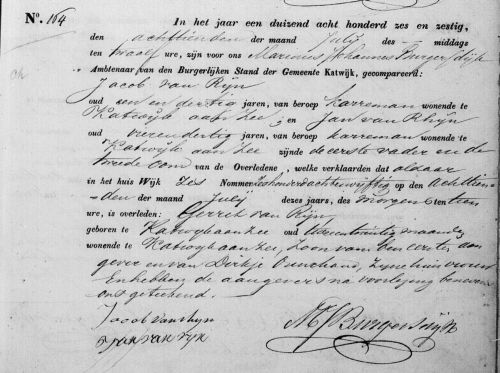 N°. 164
In het jaar een duizend acht honderd zes en zestig,
den achttienden der maand July des middags
ten twaalf ure, zijn voor ons Marinus Johannes Burgersdijk
Ambtenaar van den Burgerlijken Stand der Gemeente Katwijk, gecompareerd:
Jacob van Rijn
oud een en dertig jaren, van beroep karreman wonende te
Katwijk aan Zee en Jan van Rhijn
oud vierendertig jaren, van beroep karreman wonende te
Katwijk aan Zee zijnde de eerste vader en de
tweede oom van de Overledene, welke verklaarden dat aldaar
in het huis Wijk Zes Nommer eenhonderdachtenvijftig op den achttien-
den der maand July dezes jaars, des morgens ten tien
ure, is overleden: Gerrit van Rijn
geboren te Katwijk aan Zee oud maanden
wonende te Katwijk aan Zee, Zoon van den eersten aan
gever en van Dirkje zijne huisvrouw
En hebben de aangevers na voorlezing benevens
ons geteekend.
Jacob van rhyn
Jan van ryn
MJ Burgersdijk